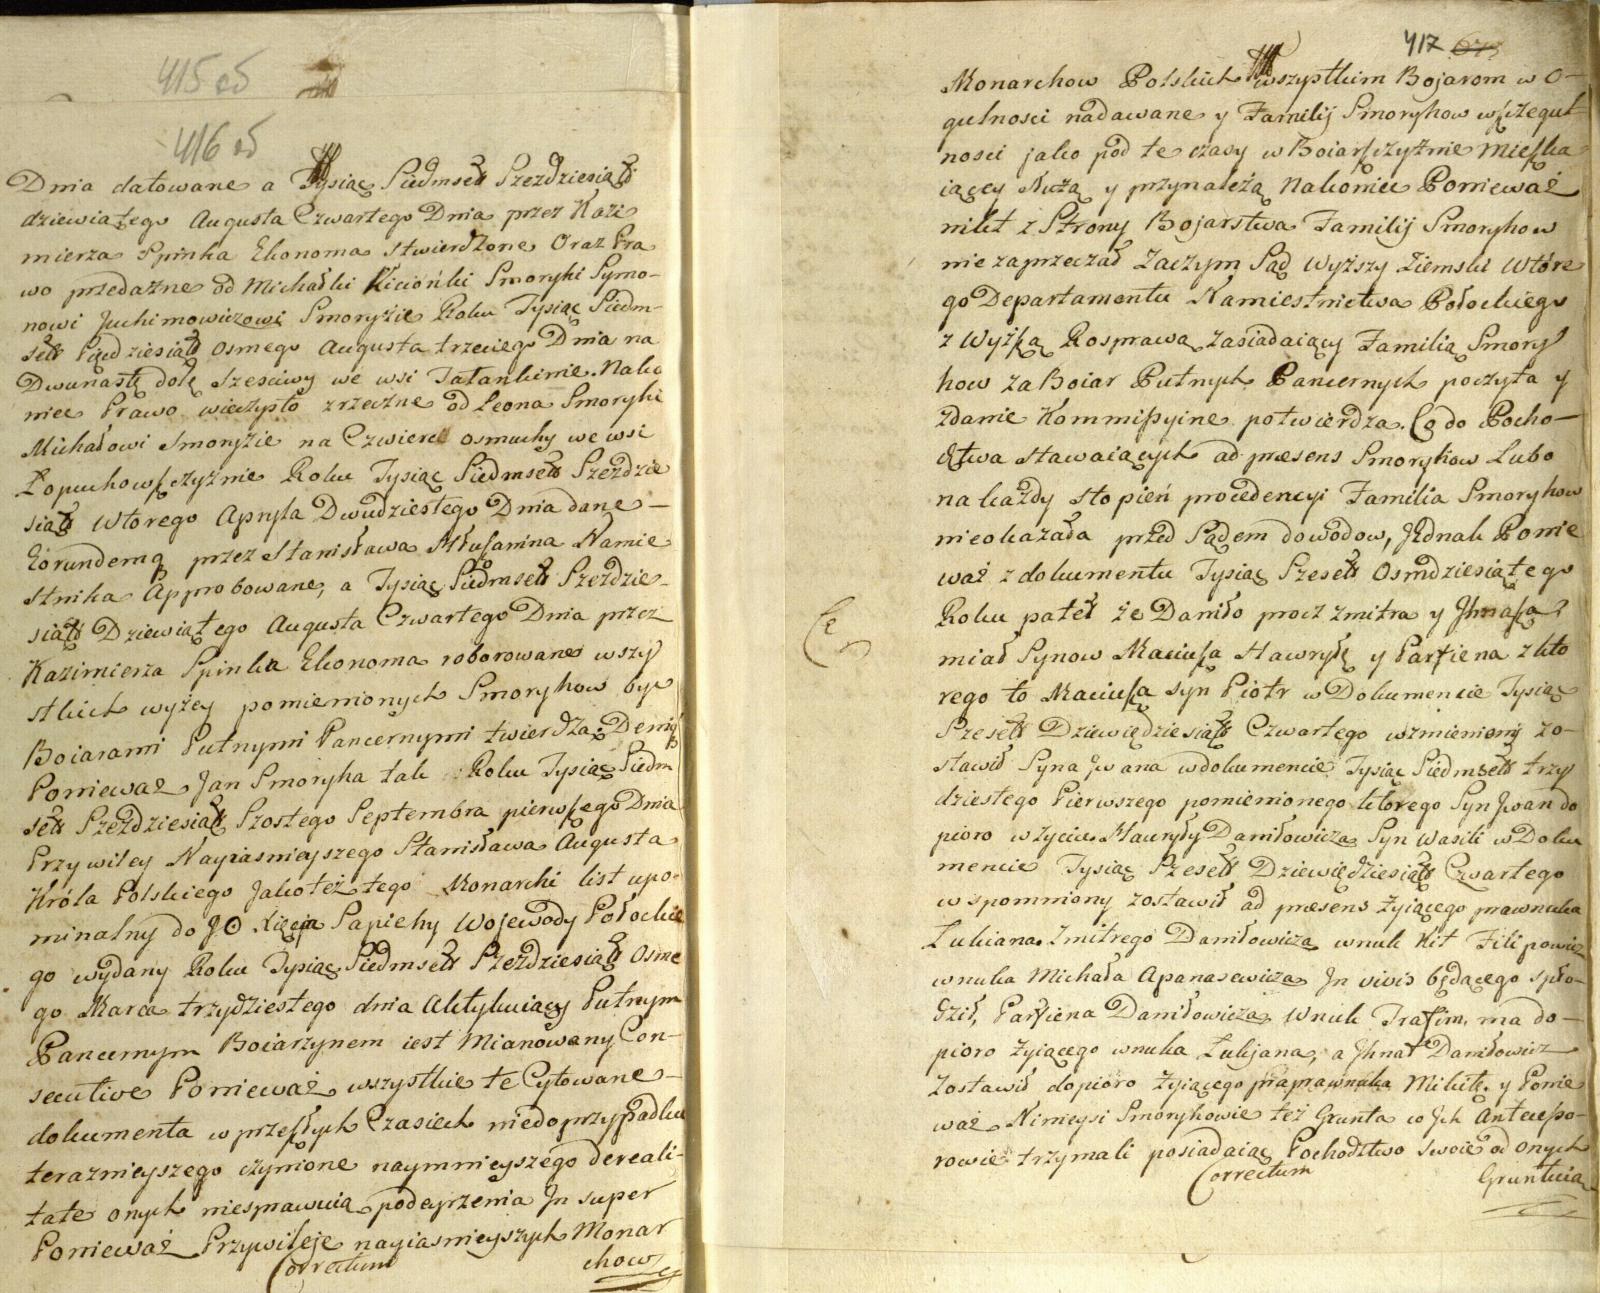 415 об
416 об
Dnia datowane a Tysiąc Siedmset Szezdziesiąt
dziewiątego Augusta Czwartego Dnia przez Kazi
mierza Spinka Ekonoma stwierdzone Oraz Pra
wo przedażne od Michałki Smoryki Symo-
nowi Juchimowiczowi Smoryzie Roku Tysiąc Siedm-
set Piędziesiąt osmego Augusta trzeciego Dnia na
Dwunastą dolę Szesciwy we wsi Tatankinie. Nako
niec Prawo wieczysto zrzeczne od Leona Smoryki
Michałowi Smoryzie na Czwierć osmuchy we wsi
Łopuchowszczyznie Roku Tysiąc Siedmset Szezdzie
siąt wtorego Apryla Dwudziestego Dnia dane -
Eorundemq przez Stanisława Namie
stnika Approbowane, a Tysiąc Siedmset Szezdzie-
siąt Dziewiątego Augusta Czwartego Dnia przez
Kazimierza Spinka Ekonoma roborowane wszy
stkich wyżey pomienionych Smorykow być
Boiarami Putnymi Pancernymi twierdzą; Demq
Ponieważ Jan Smoryka tak Roku Tysiąc Siedm
set Szezdziesiąt Szostego Septembra pierwszego Dnia
Przywiley Nayiasnieyszego Stanisława Augusta
Króla Polskiego Jakoteż tego Monarchi list upo-
minalny do JO. Xięcia Sapiehy Wojewody Połockie
go wydany Roku Tysiąc Siedmset Szezdziesiąt Osme
go Marca trzydziestego dnia aktykuiący Putnym
Pancernym Boiarzynem iest Mianowany Con-
secutive Ponieważ wszystkie te Cytowane -
dokumenta w przeszłych Czasiech niedoprzypadku
teraznieyszego czynione naymnieyszego dereali-
tate onych niesprawuią podeyrzenia Jn super
Ponieważ Przywileje nayiasnieyszych Monar
Correctum chow
417 673
Monarchow Polskich wszystkim Bojarom w O-
gulnosci nadawane y Familij Smorykow wszczegul
nosci jako pod te czasy w Boiarszczyznie Mieszka
iącey służą y przynależą Nakoniec Ponieważ
nikt z Strony Bojarstwa Familij Smorykow
nie zaprzeczał Zaczym Sąd Wyższy Ziemski Wtóre
go Departamentu Namiestnictwa Połockiego
z Wyższą Rosprawą zasiadaiący Familią Smory
kow za Boiar Putnych Pancernych poczyta y
zdanie Kommissyine potwierdza. Co do Pocho-
dztwa stawaiących ad præsens Smorykow Lubo
na każdy stopień procedencyi Familia Smorykow
nieokazała przed Sądem dowodow, Jednak Ponie
waż z dokumentu Tysiąc Szeset Osmdziesiątego
Roku pateł że Daniło procz Zmitra y Jhnasza
miał Synow Maciusza Hawryłę y Parfiena z kto
rego to Maciusza syn Piotr w Dokumencie Tysiąc
Szeset Dziewiędziesiąt Czwartego wzmieniony zo-
stawił Syna Jwana w dokumencie Tysiąc Siedmset trzy
dziestego Pierwszego pomienionego ktorego Syn Jwan do
pioro w życiu. Hawryły Daniłowicza Syn Wasili w Doku
mencie Tysiąc Szeset Dziewiędziesiąt Czwartego
wspomniony zostawił ad præsens żyiącego prawnuka
Lukiana. Zmitrego Daniłowicza wnuk Kit Filipowicz
wnuka Michała Apanasewicza Jn vivis będącego spło-
dził, Parfiena Daniłowicza Wnuk Trafim, ma do-
pioro żyiącego wnuka Lukjana, a Jhnat Daniłowicz
Zostawił dopioro żyiącego praprawnuka Mikitę. y Ponie
waż Nimeysi Smorykowie też Grunta co Jch Anteceso-
rowie trzymali posiadaiąc Pochodztwo swoie od onych
Correctum Gruntuią